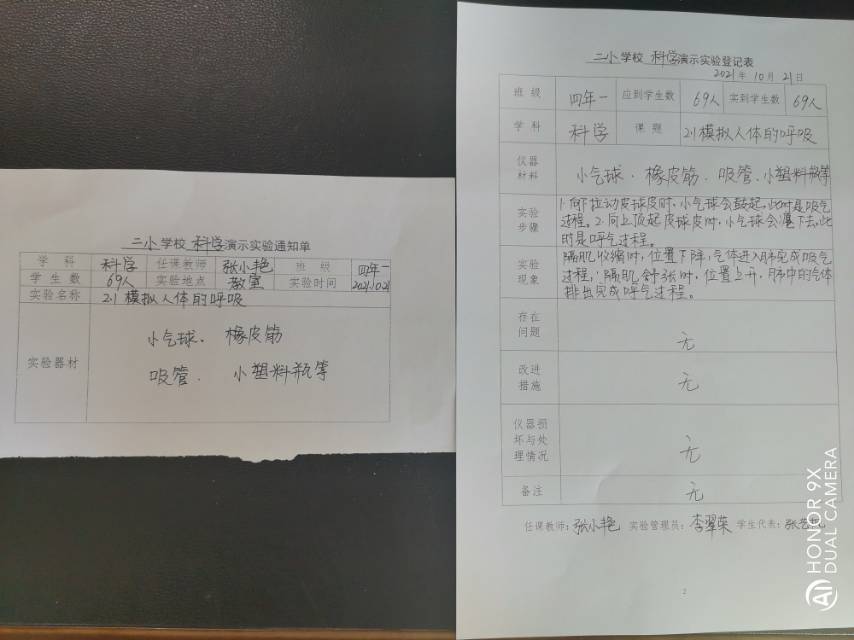 二小学校 科学演示实验通知单
学 科 科学 任课教师 张小艳 班 级 四年一
学 生 数 69人 实验地点 教室 实验时间 2021.1021
实验名称 2.1 模拟人体的呼吸
实验器材
小气球、橡皮筋
吸管、小塑料瓶等
二小学校 科学演示实验登记表
2021年 10月 21日
班 级 四年一 应到学生数 69人 实到学生数 69人
学 科 科学 课 题 2.1模拟人体的呼吸
仪器
材料
小气球、橡皮筋、吸管、小塑料瓶等
实验
步骤
1.向下拉动皮球皮时,小气球会鼓起,此时是吸气
过程。2.向上顶起皮球皮时,小气球会瘪下去,此
时是呼气过程。
实验
现象
隔肌收缩时,位置下降,气体进入肺完成吸气
过程,隔肌舒张时,位置上升,肺中的气体
排出完成呼气过程。
存在
问题
无
改进
措施
无
仪器损
坏与处
理情况
无
备注 无
任课教师:张小艳 实验管理员:李翠荣 学生代表:张艺
2
HONOR 9X
DUAL CAMERA